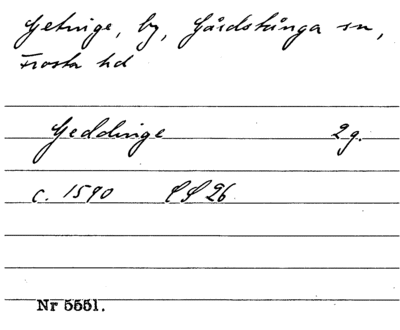 Getinge, by, Gårdstånga sn,
Frosta hd
Geddinge 2 g.
c. 1590 LS 26
Nr 5551.